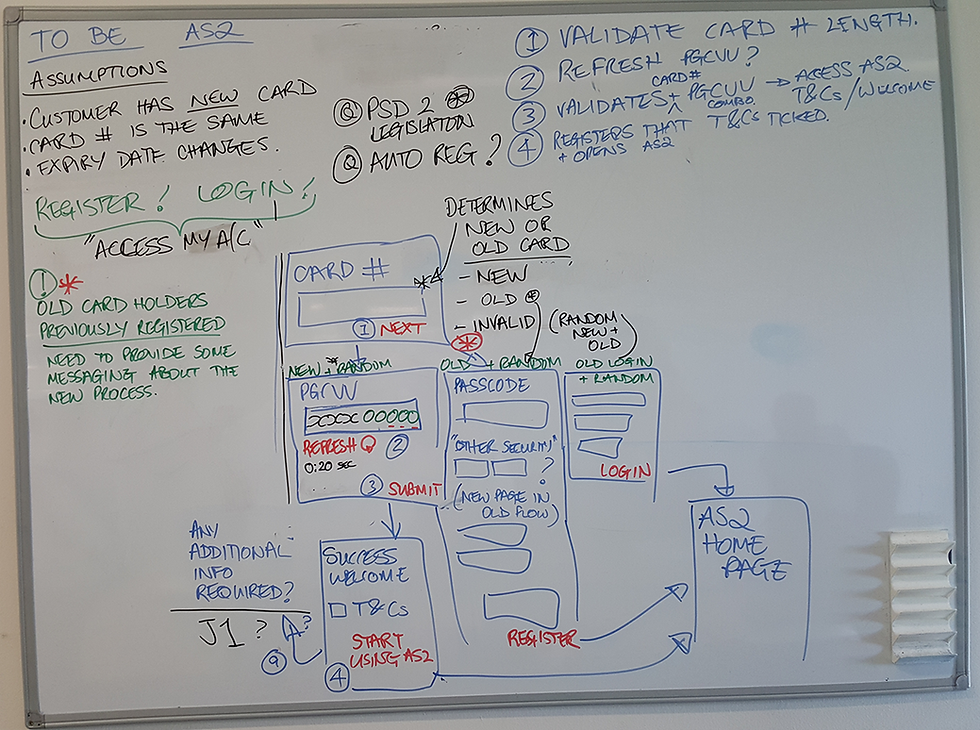 TO BE AS2
ASSUMPTIONS
• CUSTOMER HAS NEW CARD
• CARD # IS THE SAME
• EXPIRY DATE CHANGES.
REGISTER! LOGIN!
"ACCESS MY A/C"
! *
OLD CARD HOLDERS
PREVIOUSLY REGISTERED
NEED TO PROVIDE SOME
MESSAGING ABOUT THE
NEW PROCESS.
Q PSD2 *
LEGISLATON
Q AUTO REG?
1 VALIDATE CARD # LENGTH.
2 REFRESH PGCVV?
3 VALIDATES + CARD # PGCVV COMBO → ACCESS AS2
T&Cs/WELCOME
4 REGISTERS THAT T&Cs TICKED.
+ OPENS AS2
DETERMINES
NEW OR
OLD CARD
- NEW
- OLD *
- INVALID
(RANDOM
NEW +
OLD)
CARD #
*
1 NEXT
*
NEW + RANDOM
*
PGCVV
XXXX 00000
REFRESH 2
0:20 SEC
3 SUBMIT
OLD + RANDOM
PASSCODE
"OTHER SECURITY"
?
(NEW PAGE IN
OLD FLOW)
REGISTER
OLD LOGIN
+ RANDOM
LOGIN
AS2
HOME
PAGE
ANY
ADDITIONAL
INFO
REQUIRED?
J1?
A?
SUCCESS
WELCOME
T&Cs
START
USING AS2
4